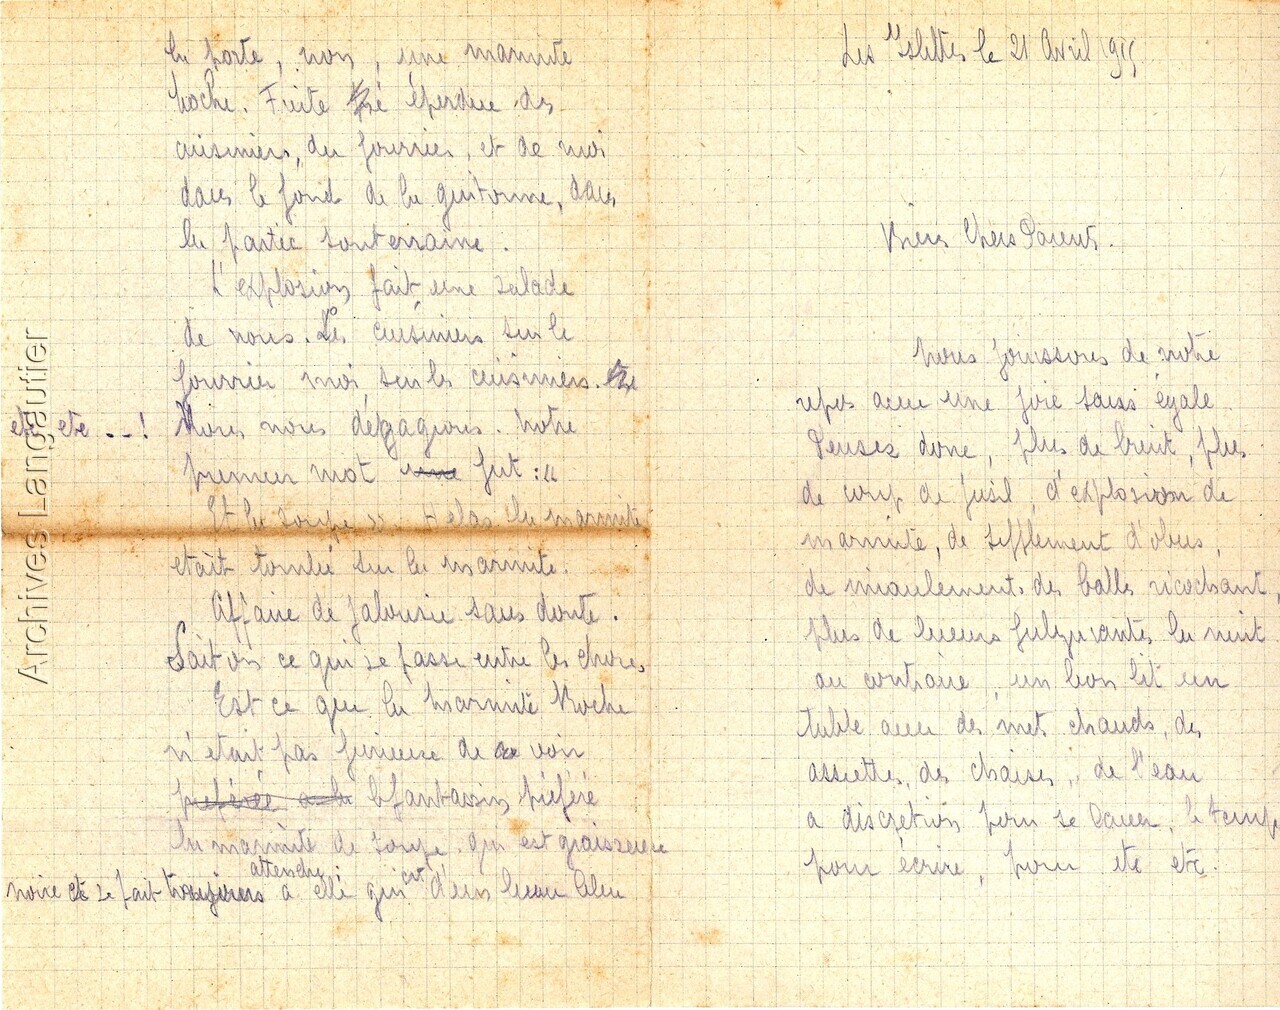 la porte, non, une marmite
boche. Fuite éperdue des
cuisiniers, du fourrier, et de moi
dans le fond de la guitoune, dans
la partie souterraine.
L'explosion fait une salade
de nous. Les cuisiniers sur le
fourrier moi sur les cuisiniers.
etc etc ...! Nous nous dégagions. Notre
premier mot fut : "
Et la soupe ». Helas la marmite
etait tombée sur la marmite.
Affaire de jalousie sans doute.
Sait on ce qui se passe entre les choses
Est ce que la marmite Boche
n'etait pas furieuse de voir
preférée a la le fantassin préféré
la marmite de soupe. qui est graisseuse
noire et se fait toujours attendre a elle qui est d'un beau bleu
Les Islettes le 21 Avril 1915
Biens Chers Parents.
Nous jouissons de notre
repos avec une joie sans égale
Pensez donc, plus de bruit, plus
de coup de fusil, d'explosion de
marmite, de sifflement d'obus,
de miaulements de balles ricochant,
plus de lueurs fulgurantes la nuit
au contraire, un bon lit un
table avec des met chauds, des
assiettes, des chaises, de l'eau
a discrétion pour se laver, le temps
pour écrire, pour etc etc.
Archives Langautier